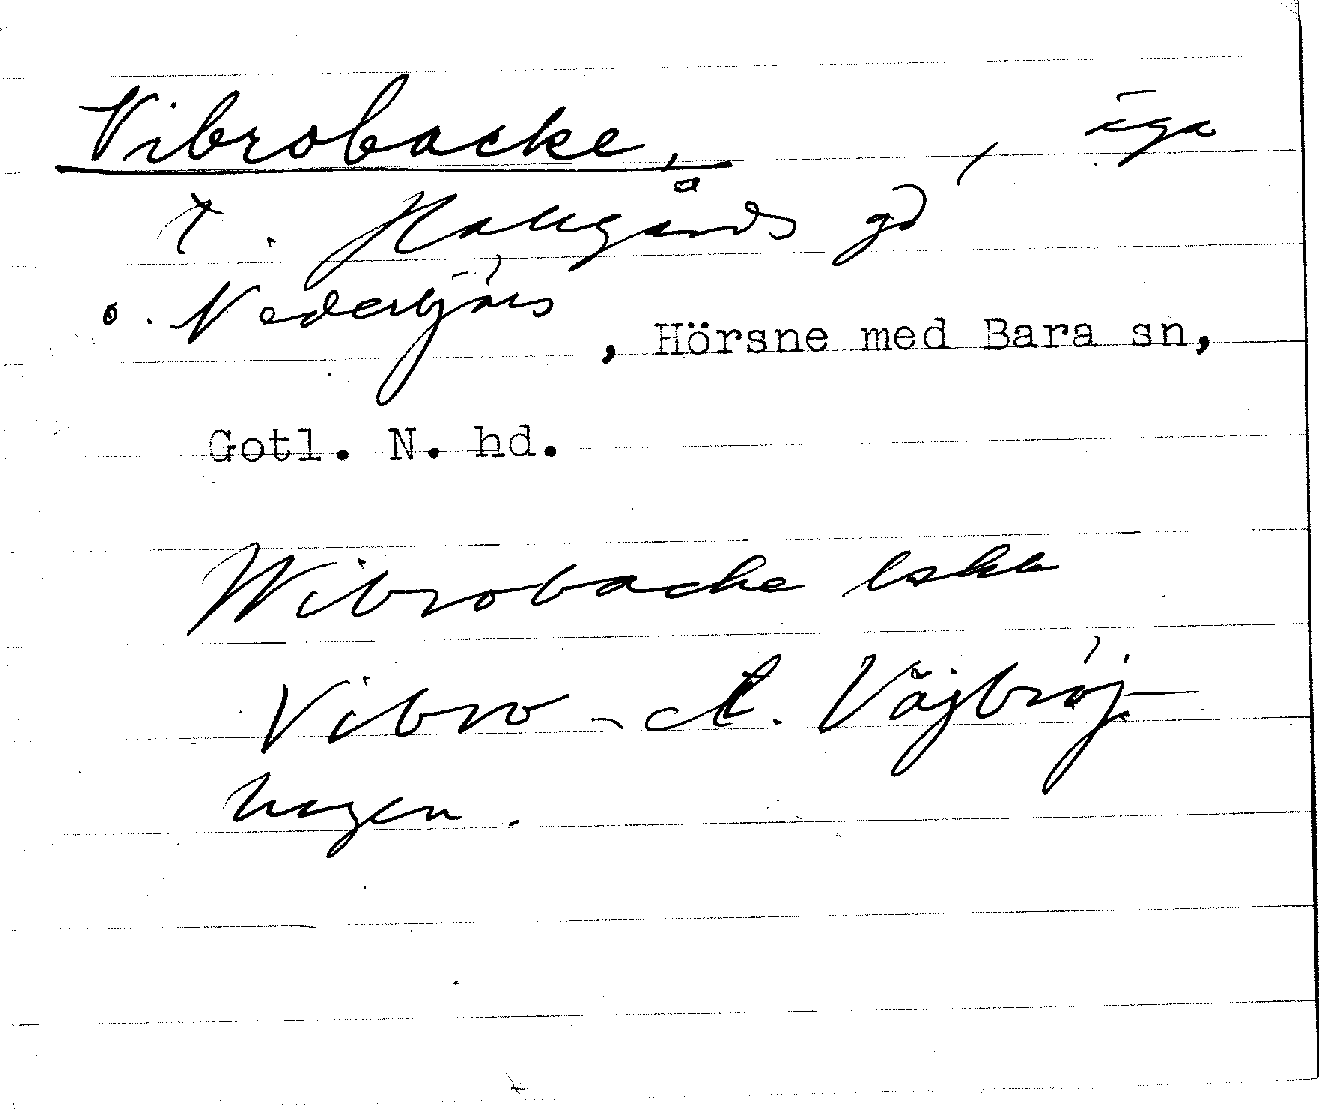 Vibrobacke, äga
t. Hallgårds gd,
o. Nederbjärs, Hörsne med Bara sn,
Gotl. N. hd.
Wibrobacke lska
Vibro- el. Väjbröj-
hagen.